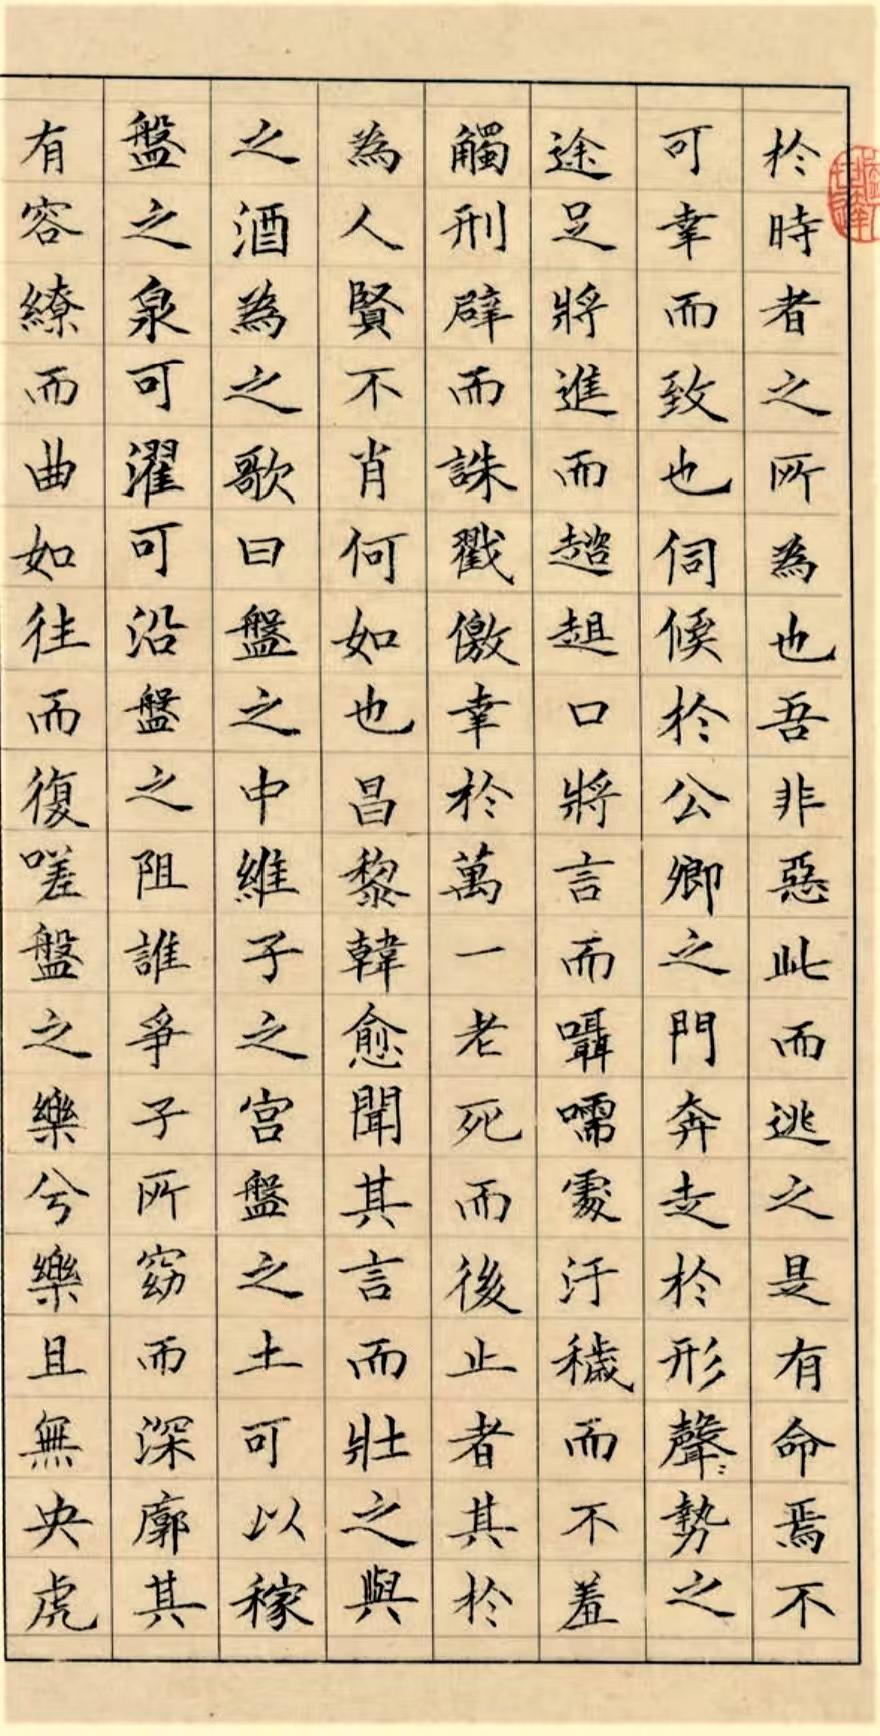 於時者之所為也吾非惡此而逃之是有命焉不
可幸而致也伺候於公卿之門奔走於形聲勢之
途足將進而趑趄口將言而囁嚅處汙穢而不羞
觸刑辟而誅戮儌幸於萬一老死而後止者其於
為人賢不肖何如也昌黎韓愈聞其言而壯之與
之酒為之歌曰盤之中維子之宮盤之土可以稼
盤之泉可濯可沿盤之阻誰爭子所窈而深廓其
有容繚而曲如往而復嗟盤之樂兮樂且無央虎